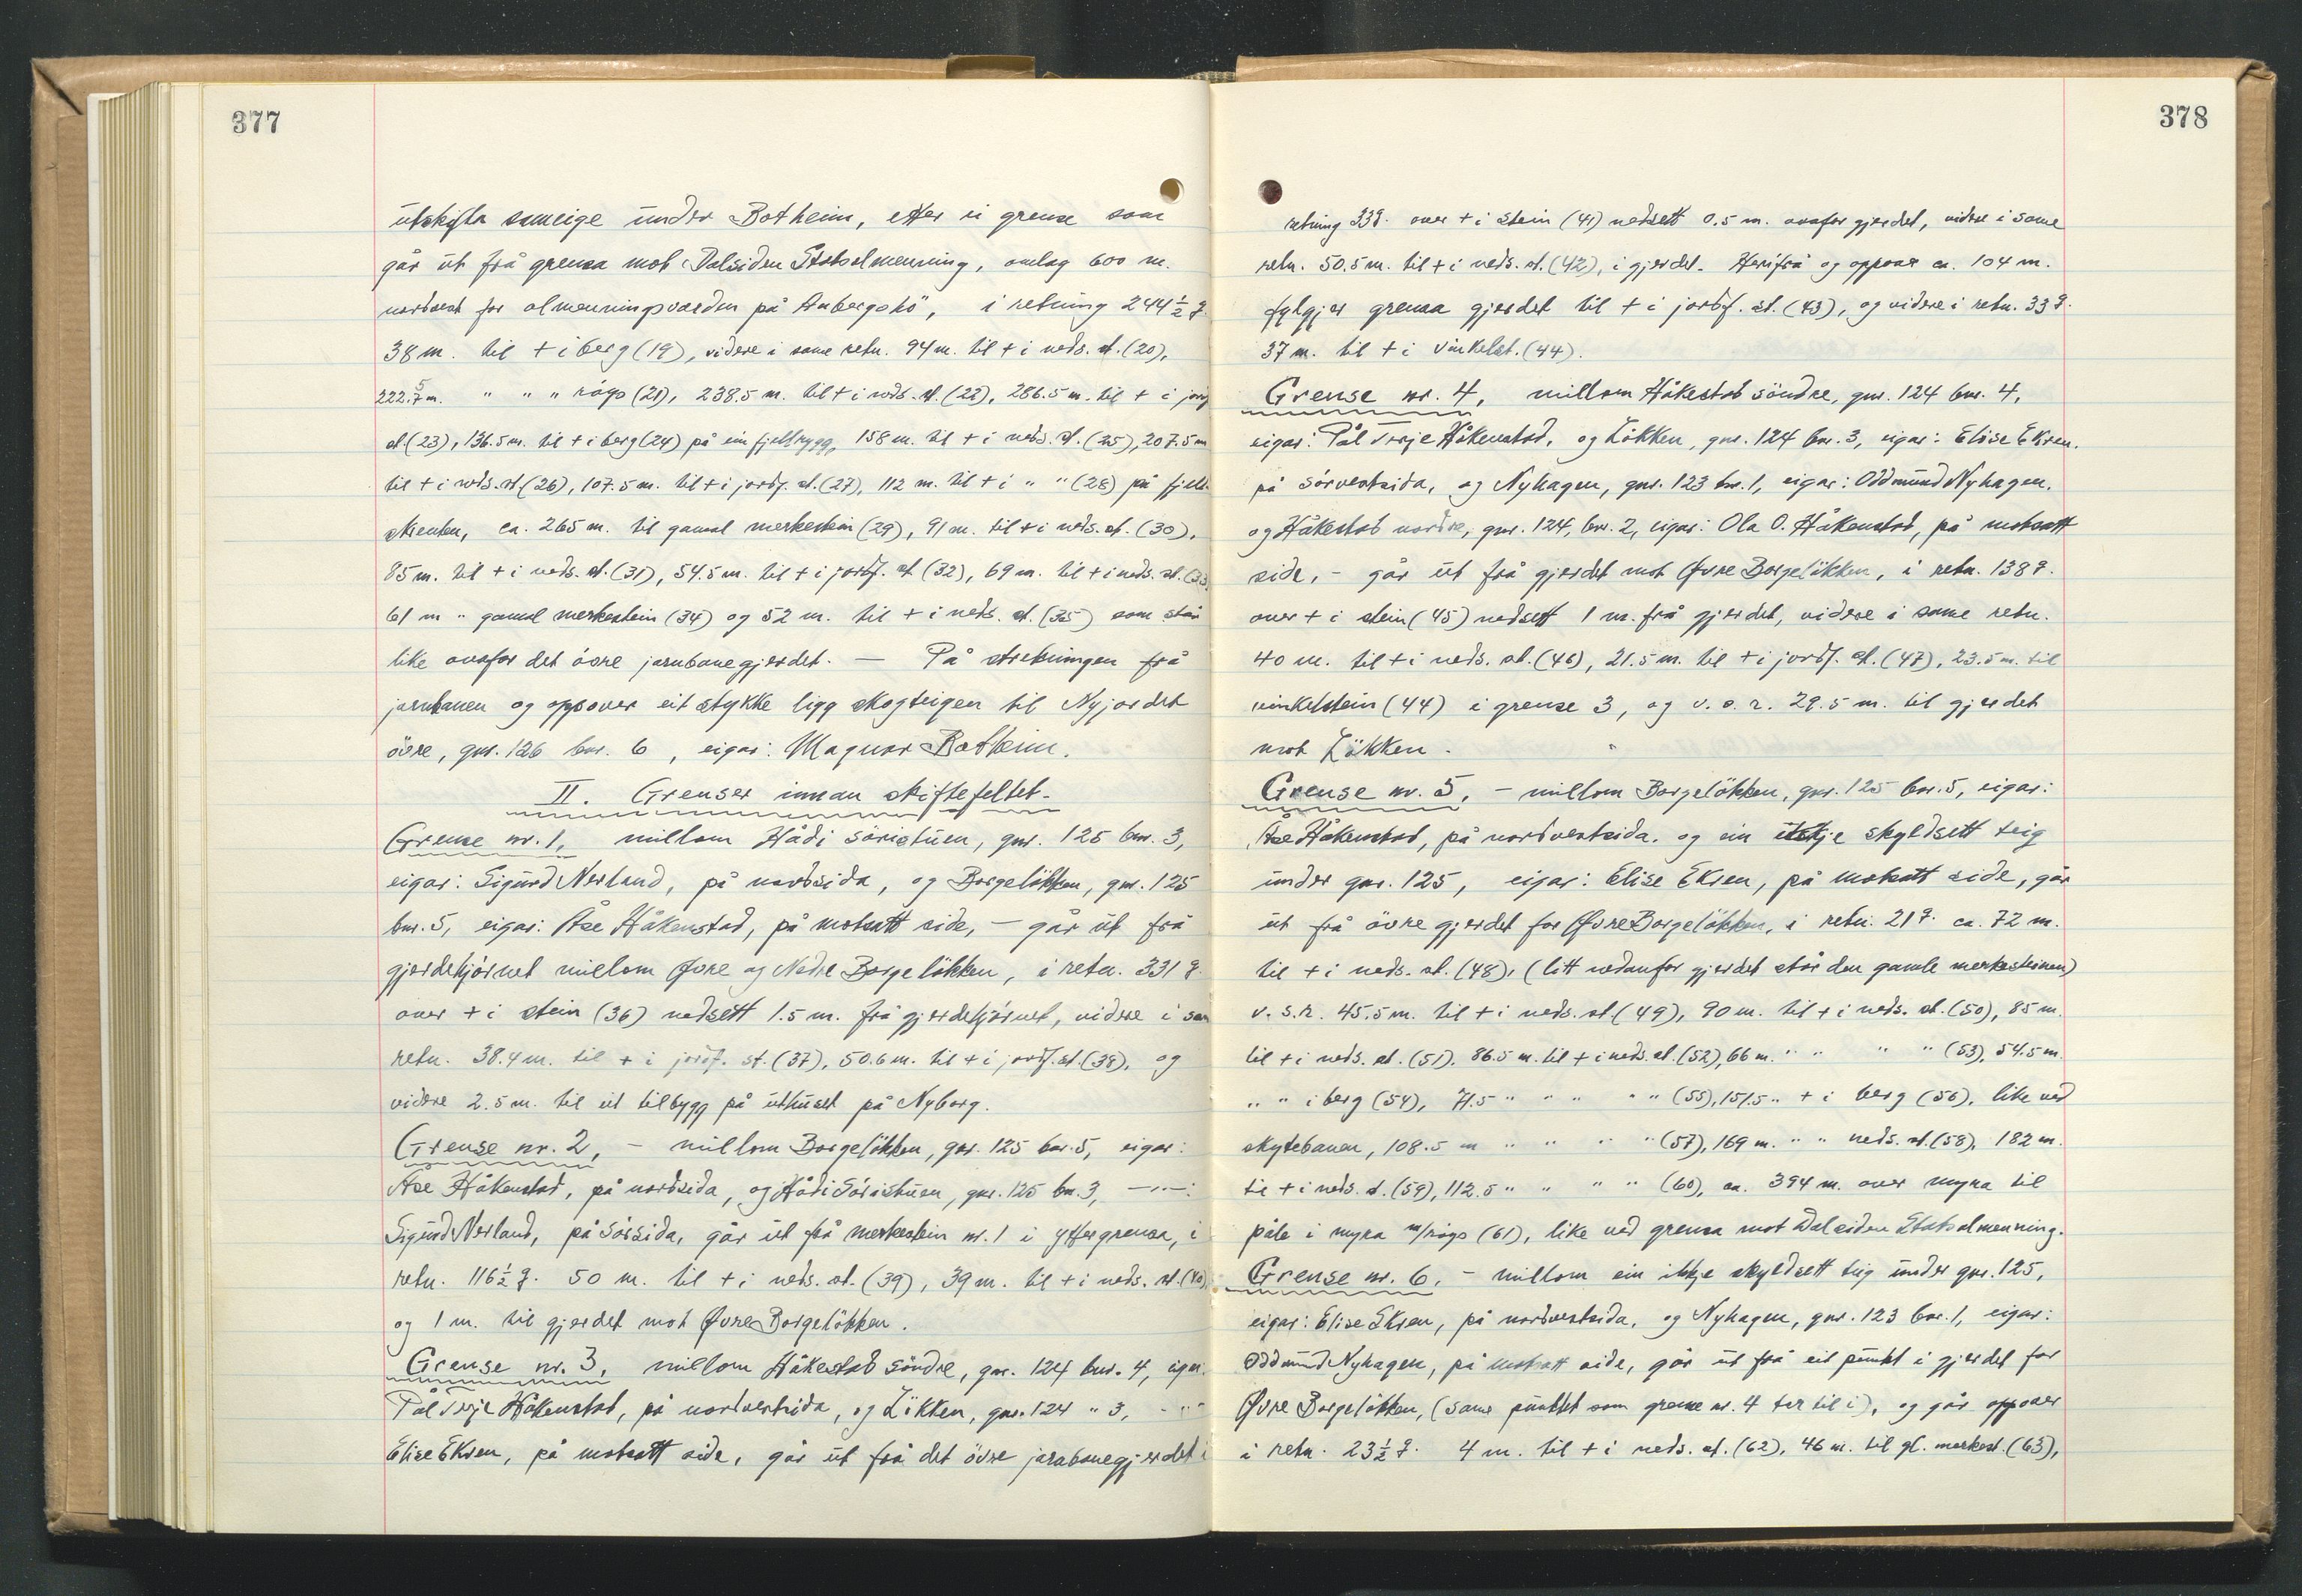 377
utskifta sameige under Botheim, etter ei grense som
går ut frå grensa mot Dalsiden Statsalmenning, omlag 600 m.
nordvest for almenningsvarden på Anbergshö, i retning 244½ g.
38 m. til + i berg (19), videre i same retn. 94 m. til + i neds. st. (20),
222.5 m. " " " röys (21), 238.5 m. til + i neds. st. (22), 286.5 m. til + i jordf.
st. (23), 136.5 m. til + i berg (24) på ein fjellrygg, 158 m. til + i neds. st. (25), 207.5 m
til + i neds. st. (26), 107.5 m. til + i jordf. st. (27), 112 m. til + i " " (28) på fjell-
skrenten, ca. 265 m. til gamal merkestein (29), 91 m. til + i neds. st. (30),
85 m. til + i neds. st. (31), 54.5 m. til + i jordf. st (32), 69 m. til + i neds. st. (33),
61 m " gamal merkestein (34) og 52 m. til + i neds. st. (35) som står
like ovafor det övre jarnbanegjerdet. — På strekningen frå
jarnbanen og oppover eit stykke ligg skogteigen til Nyjordet
övre, gnr. 126 bnr. 6, eigar: Magnar Botheim.
II. Grenser innan skiftefeltet.
Grense nr. 1, millom Hådi söristuen, gnr. 125 bnr. 3,
eigar: Sigurd Nerland, på nordsida, og Borgelökken, gnr. 125
bnr. 5, eigar: Åse Håkenstad, på motsatt side, – går ut frå
gjerdehjörnet millom Øvre og Nedre Borgelökken, i retn. 331 g.
over + i stein (36) nedsett 1.5 m. frå gjerdehjörnet, videre i sam
retn. 38.4 m. til + i jordf. st. (37), 50.6 m. til + i jordf. st. (38), og
videre 2.5 m. til eit tilbygg på uthuset på Nyborg.
Grense nr. 2, – millom Borgelökken, gnr. 125 bnr. 5, eigar:
Åse Håkenstad, på nordsida, og Hådi Söristuen, gnr. 125 bnr. 3, —"—:
Sigurd Nerland, på sörsida, går ut frå merkestein nr. 1 i yttergrensa, i
retn. 116½ g. 50 m. til + i neds. st. (39), 39 m. til + i neds. st. (40),
og 1 m. til gjerdet mot Øvre Borgelökken.
Grense nr. 3, millom Håkestad söndre, gnr. 124 bnr. 4, eigar:
Pål Terje Håkenstad, på nordvestsida, og Lökken, gnr. 124 " 3, – " –
Elise Ekren, på motsatt side, går ut frå det övre jarnbanegjerdet i
378
retning 33 g. over + i stein (41) nedsett 0.5 m. ovafor gjerdet, videre i same
retn. 50.5 m. til + i neds. st. (42), i gjerdet. Herifrå og oppover ca. 104 m.
fylgjer grensa gjerdet til + i jordf. st. (43), og videre i retn. 33 g.
37 m. til + i vinkelst. (44).
Grense nr. 4, millom Håkestad söndre, gnr. 124 bnr. 4,
eigar: Pål Terje Håkenstad, og Lökken, gnr. 124 bnr. 3, eigar: Elise Ekren.
på sörvestsida, og Nyhagen, gnr. 123 bnr. 1, eigar: Oddmund Nyhagen.
og Håkestad nordre, gnr. 124, bnr. 2, eigar: Ola O. Håkenstad, på motsatt
side, – går ut frå gjerdet mot Øvre Borgelökken, i retn. 138 g.
over + i stein (45) nedsett 1 m. frå gjerdet, videre i same retn.
40 m. til + i neds. st. (46), 21.5 m. til + i jordf. st. (47), 23.5 m. til
vinkelstein (44) i grense 3, og v. s. r. 29.5 m. til gjerdet
mot Lökken.
Grense nr. 5, – millom Borgelökken, gnr. 125 bnr. 5, eigar:
Åse Håkenstad, på nordvestsida, og ein ikkje skyldsett teig
under gnr. 125, eigar: Elise Ekren, på motsatt side, går
ut frå övre gjerdet for Øvre Borgelökken, i retn. 21 g. ca. 72 m.
til + i neds. st. (48), (litt nedanfor gjerdet står den gamle merkesteinen)
v. s. r. 45.5 m. til + i neds. st. (49), 90 m. til + i neds. st. (50), 85 m.
til + i neds. st. (51), 86.5 m. til + i neds. st. (52), 66 m. " " " " (53), 54.5 m.
" " i berg (54), 71.5 " " " " " (55), 151.5 " + i berg (56), like ved
skytebanen, 108.5 m " " " " (57), 169 m. " " neds. st. (58), 182 m.
til + i neds. st. (59), 112.5 " " " " (60), ca. 394 m. over myra til
påle i myra m/röys (61), like ved grensa mot Dalsiden Statsalmenning.
Grense nr. 6, – millom ein ikkje skyldsett teig under gnr. 125,
eigar: Elise Ekren, på nordvestsida, og Nyhagen, gnr. 123 bnr. 1, eigar:
Oddmund Nyhagen, på motsatt side, går ut frå eit punkt i gjerdet for
Øvre Borgelökken, (same punktet som grense nr. 4 tar til i), og går oppover
i retn. 23½ g. 4 m. til + i neds. st. (62), 46 m. til gl. merkest. (63),